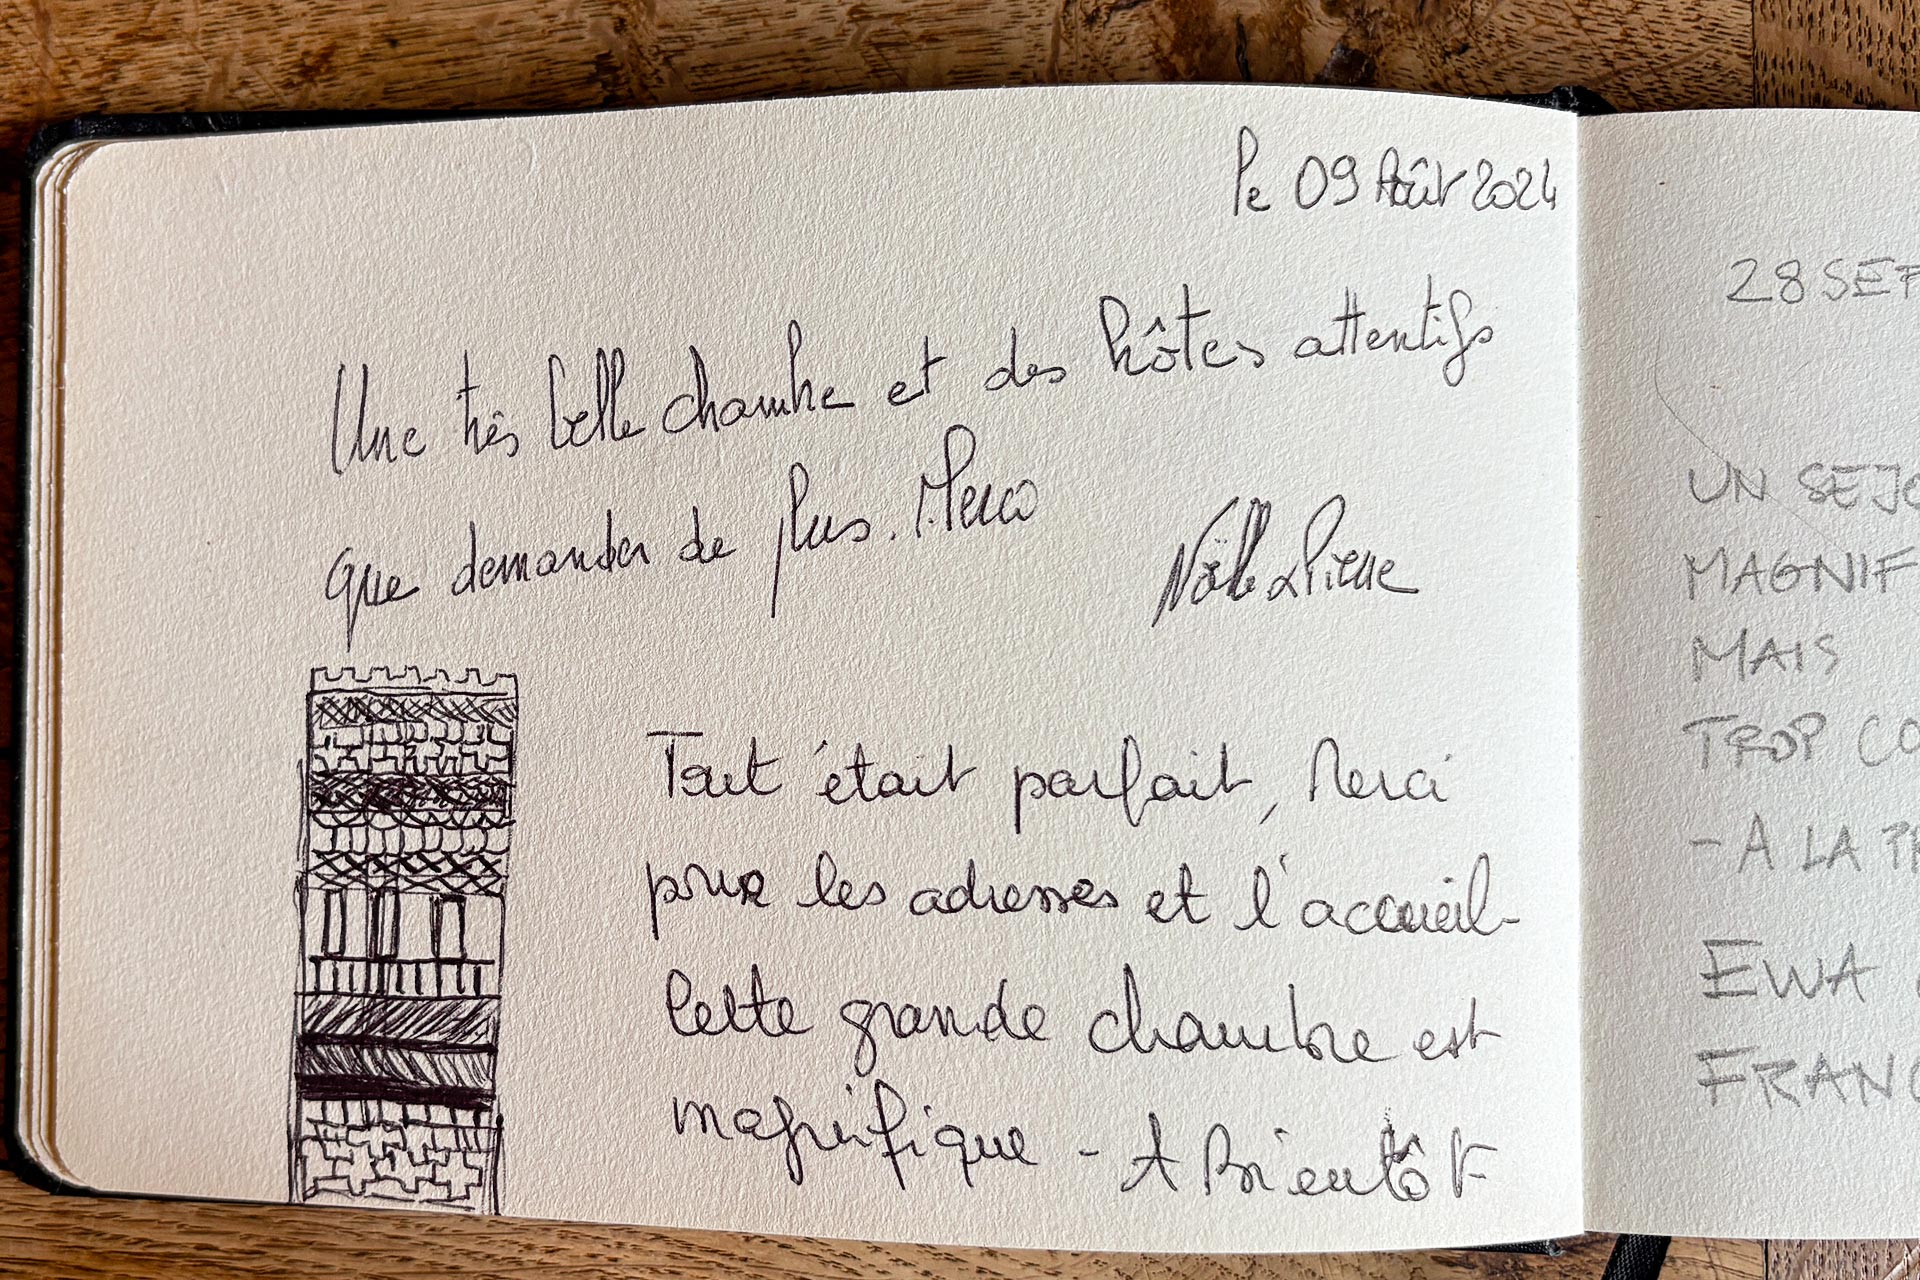 Le 09 Août 2024
Une très belle chambre et des hôtes attentifs
que demander de plus. Merci
Noëlle & Pierre
Tout était parfait, Merci
pour les adresses et l'accueil-
Cette grande chambre est
magnifique - A Bientôt
28 SEP
UN SEJO
MAGNIF
MAIS
TROP CO
- A LA PR
EWA
FRANC